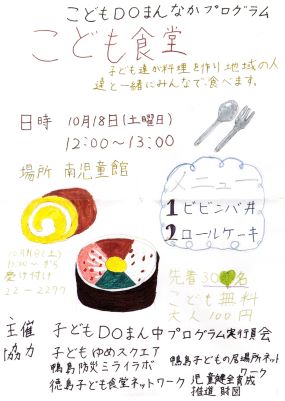 こどもDOまんなかプログラム
こども食堂
子ども達が料理を作り地域の人
達と一緒にみんなで食べます。
日時 10月18日(土曜日)
12:00〜13:00
場所 南児童館
メニュー
1 ビビンバ丼
2 ロールケーキ
(土)
受け付け
22-2297
先着30名
こども無料
大人100円
主催 子どもDOまん中プログラム実行員会
協力 子どもゆめスクエア
鴨島防災ミライラボ
徳島子ども食堂ネットワーク
鴨島子どもの居場所ネット
ワーク
児童健全育成
推進財団